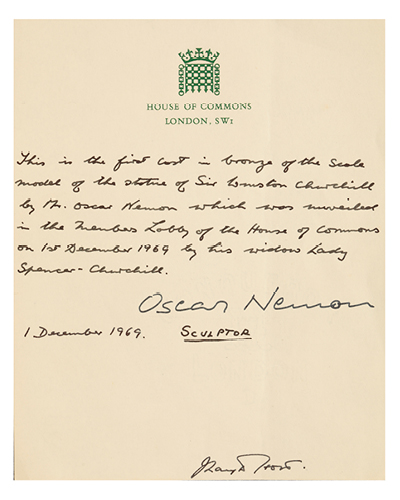 HOUSE OF COMMONS
LONDON, SW1
This is the first cast in bronze of the Scale
model of the statue of Sir Winston Churchill
by Mr. Oscar Nemon which was unveiled
in the Members Lobby of the House of Commons
on 1st December 1969 by his widow Lady
Spencer-Churchill.
Oscar Nemon
1 December 1969. SCULPTOR